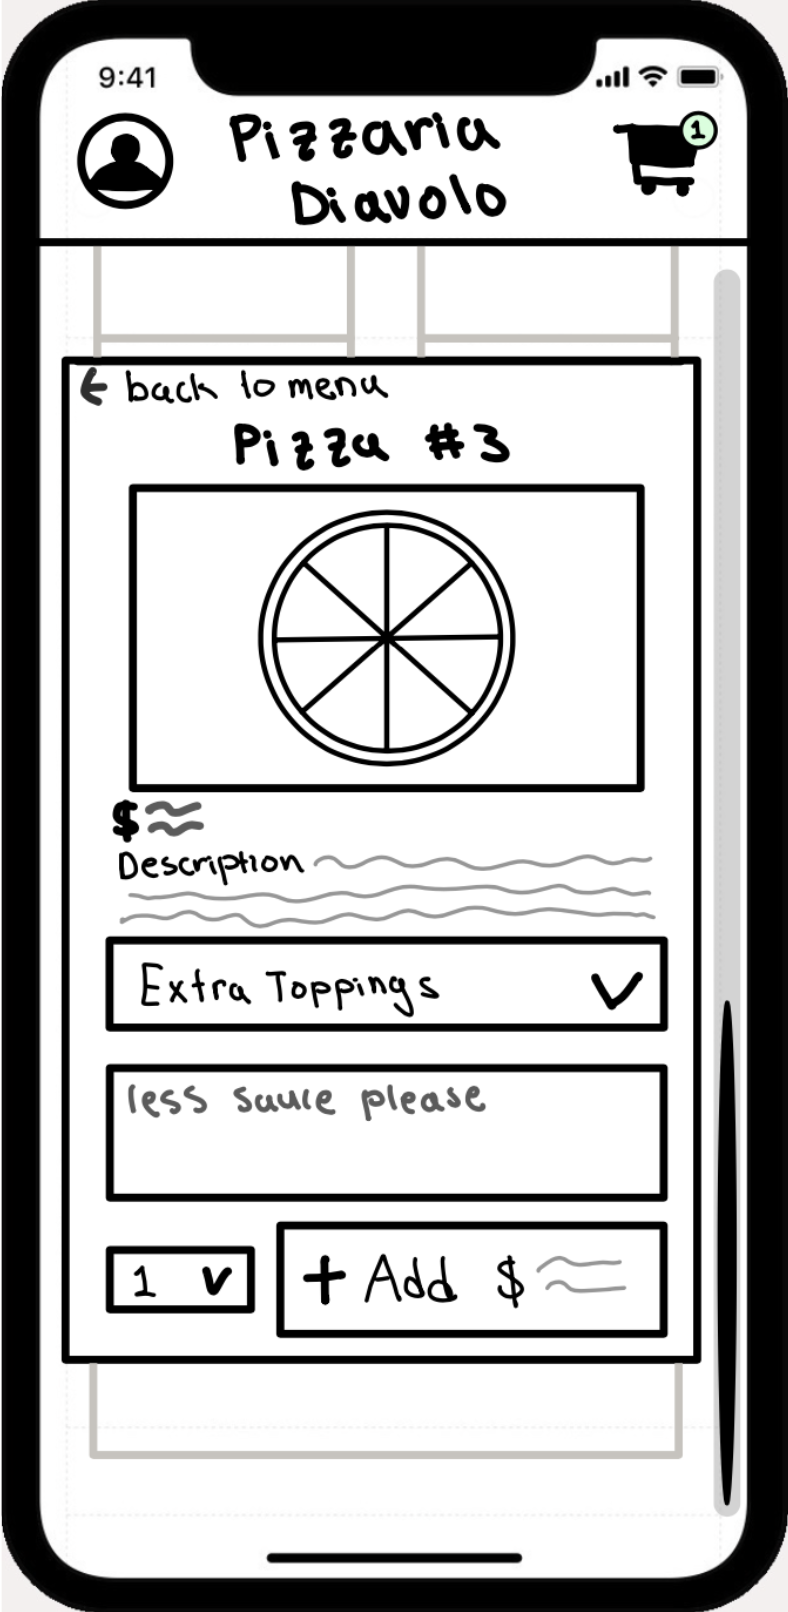 9:41
Pizzaria
Diavolo
1
← back to menu
Pizza #3
$
Description
Extra Toppings
less sauce please
1
+ Add $